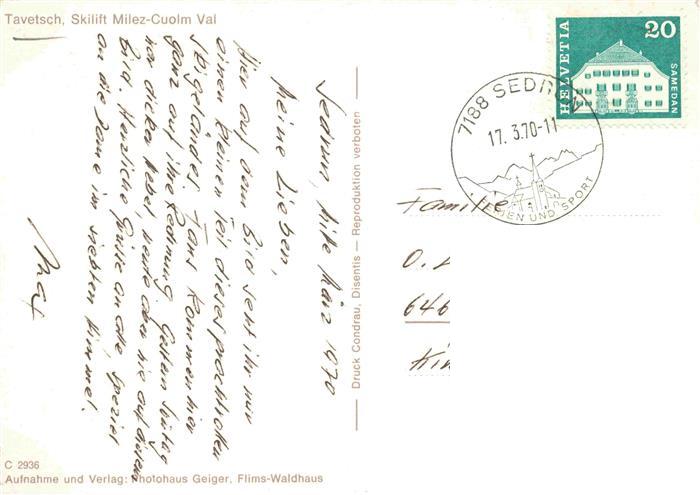 Tavetsch, Skilift Milez-Cuolm Val
HELVETIA
20
SAMEDAN
7188 SEDRUN
17. 3.70-11
FERIEN UND SPORT
Sedrun, Mitte März 1970
Meine Lieben,
Hier auf dem Bild seht ihr nur
einen kleinen Teil dieses prachtvollen
Skigeländes. Fans kommen hier
ganz auf ihre Rechnung. Gestern Sonntag
war dicker Nebel, heute aber wie auf diesem
Bild. Herzliche Grüsse an alle, speziel
an die Dame im siebten Himmel.
Max
Druck Condrau, Disentis — Reproduktion verboten
Familie
646
C 2936
Aufnahme und Verlag: Photohaus Geiger, Flims-Waldhaus